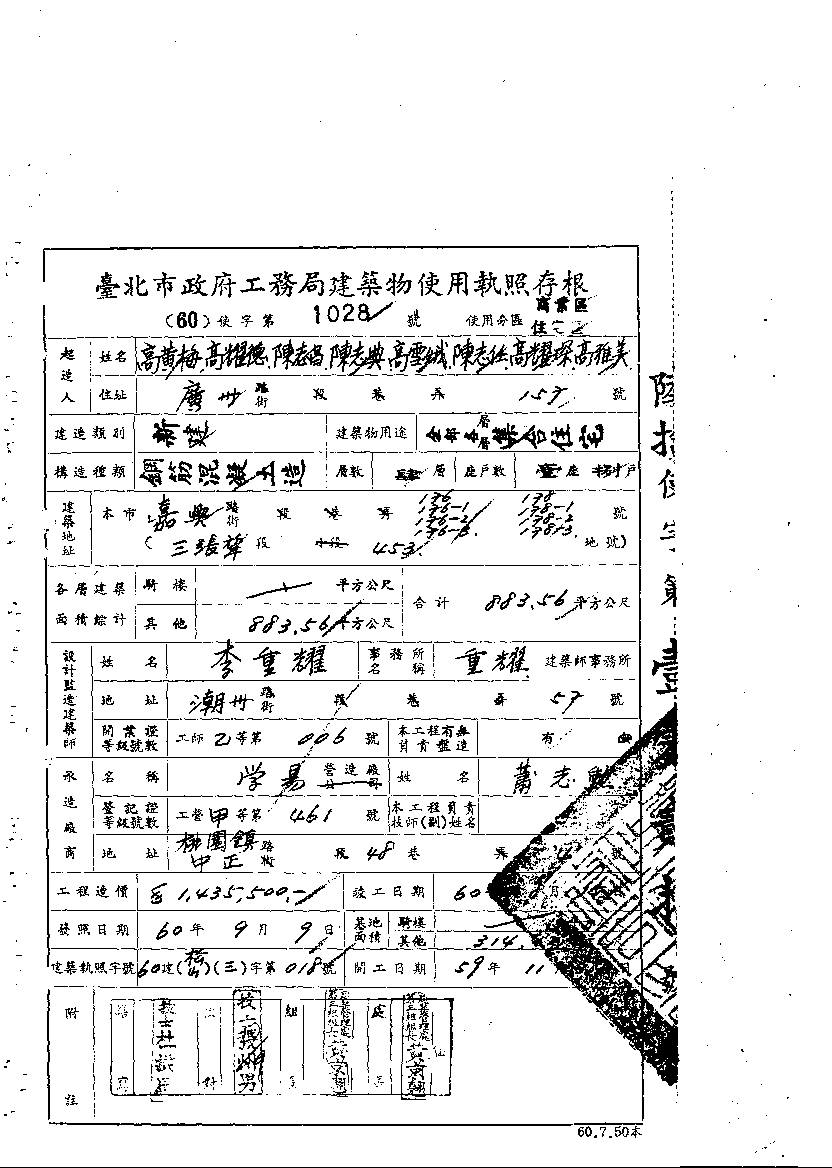 臺北市政府工務局建築物使用執照存根
(60)使字第 1028 號 使用分區 商業區
住
起造人 姓名 高黃梅 高耀德 陳志昌 陳志典 高雪絨 陳志任 高耀琛 高雅美
住址 廣州 路街 段 巷 弄 157 號
建造類別 新建 建築物用途 全部各層 集合住宅
構造種類 鋼筋混凝土造 層數 層 座戶數 座 戶
建築地址 本市 嘉興 路街 段 巷 弄 號
176 178
176-1 178-1
176-2 178-2
176-3 178-3
(三張犂 段 小段 453 地號)
各層建築面積綜計 騎樓 平方公尺 合計 883.56 平方公尺
其他 883.56 平方公尺
設計監造建築師 姓名 李重耀 事務所名稱 重耀 建築師事務所
地址 潮州 路街 段 巷 弄 57 號
開業證等級號數 工師乙等第 006 號 本工程有無負責監造 有
承造廠商 名稱 学易 營造廠 姓名 蕭志
登記證等級號數 工營甲等第 461 號 本工程負責技師(副)姓名
地址 桃園鎮中正 路街 段 48 巷 弄 號
工程造價 1,435,500.- 竣工日期 60 月
發照日期 60年 9月 9日 基地面積 騎樓
其他 314.
建築執照字號 60建(松山)(三)字第018號 開工日期 59年 11
附註
60.7.50本